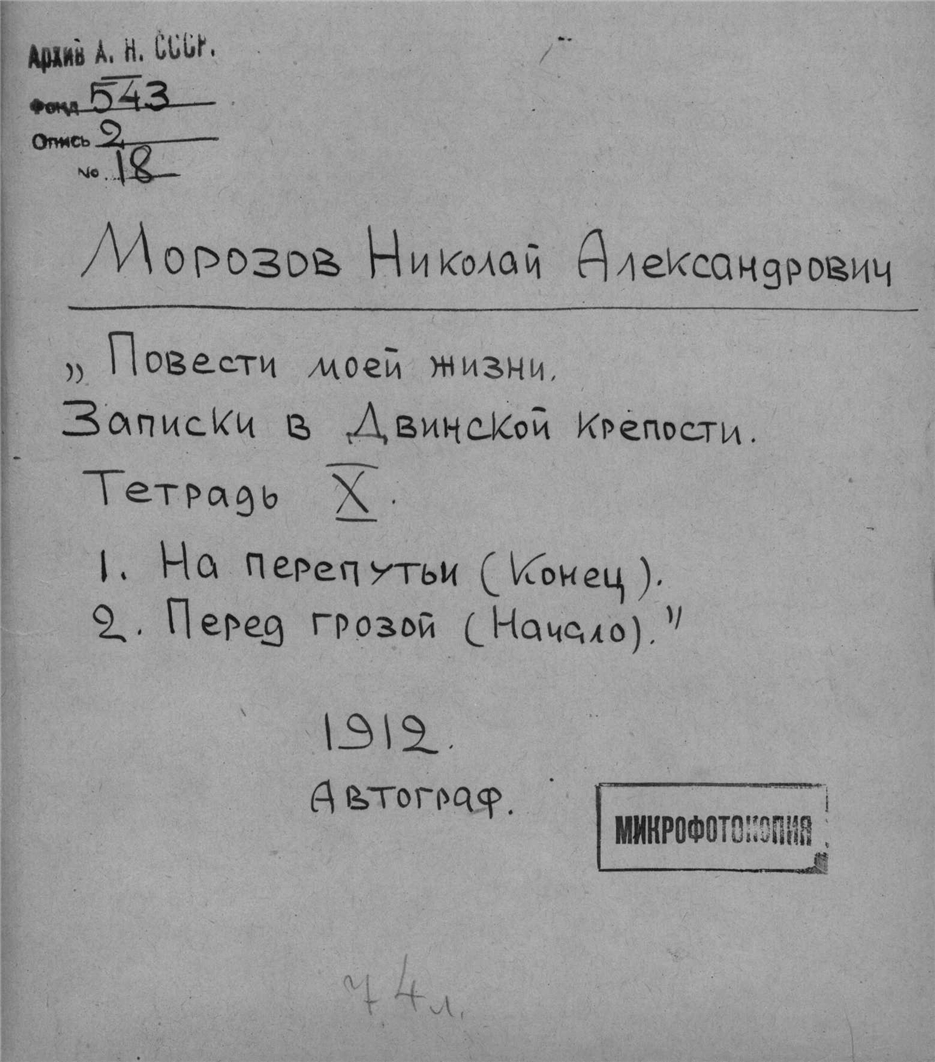 Архив А. Н. СССР.
Фонд 543
Опись 2
No 18
Морозов Николай Александрович
„Повести моей жизни.
Записки в Двинской крепости.
Тетрадь X.
1. На перепутьи (Конец).
2. Перед грозой (Начало)."
1912.
Автограф.
МИКРОФОТОКОПИЯ
74л.